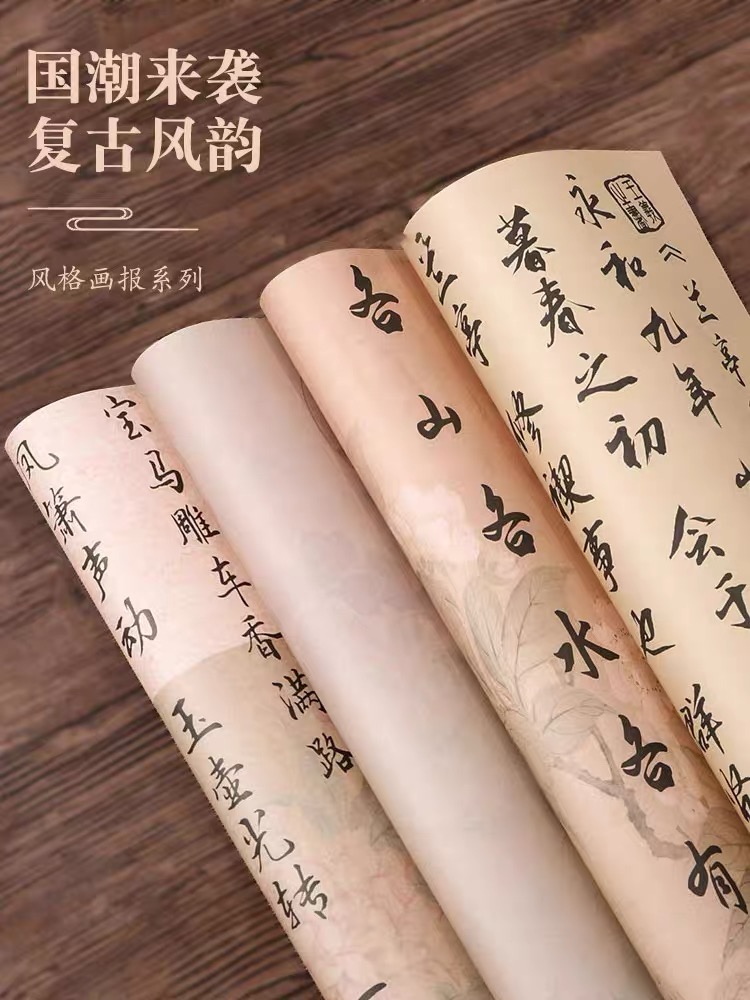 国潮来袭
复古风韵
风格画报系列
宝马雕车香满路
凤箫声动
玉壶光转
各山各水各有
《兰亭
永和九年
暮春之初 会于
兰亭 修禊事也 群